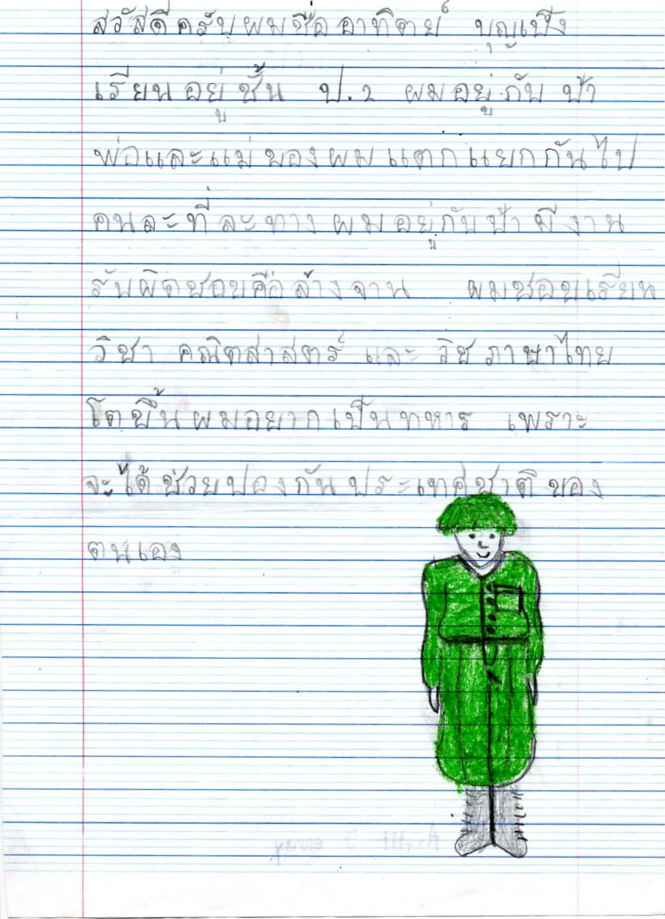 สวัสดีครับผมชื่ออาทิตย์ บุญเป็ง
เรียนอยู่ชั้น ป.2 ผมอยู่กับป้า
พ่อและแม่ของผมแตกแยกกันไป
คนละที่ละทางผมอยู่กับป้ามีงาน
รับผิดชอบคือล้างจาน ผมชอบเรียน
วิชา คณิตสาสตร์ และ วิชภาษาไทย
โตขึ้นผมอยากเป็นทหาร เพราะ
จะได้ช่วยปองกันประเทศชาติของ
ตนเอง